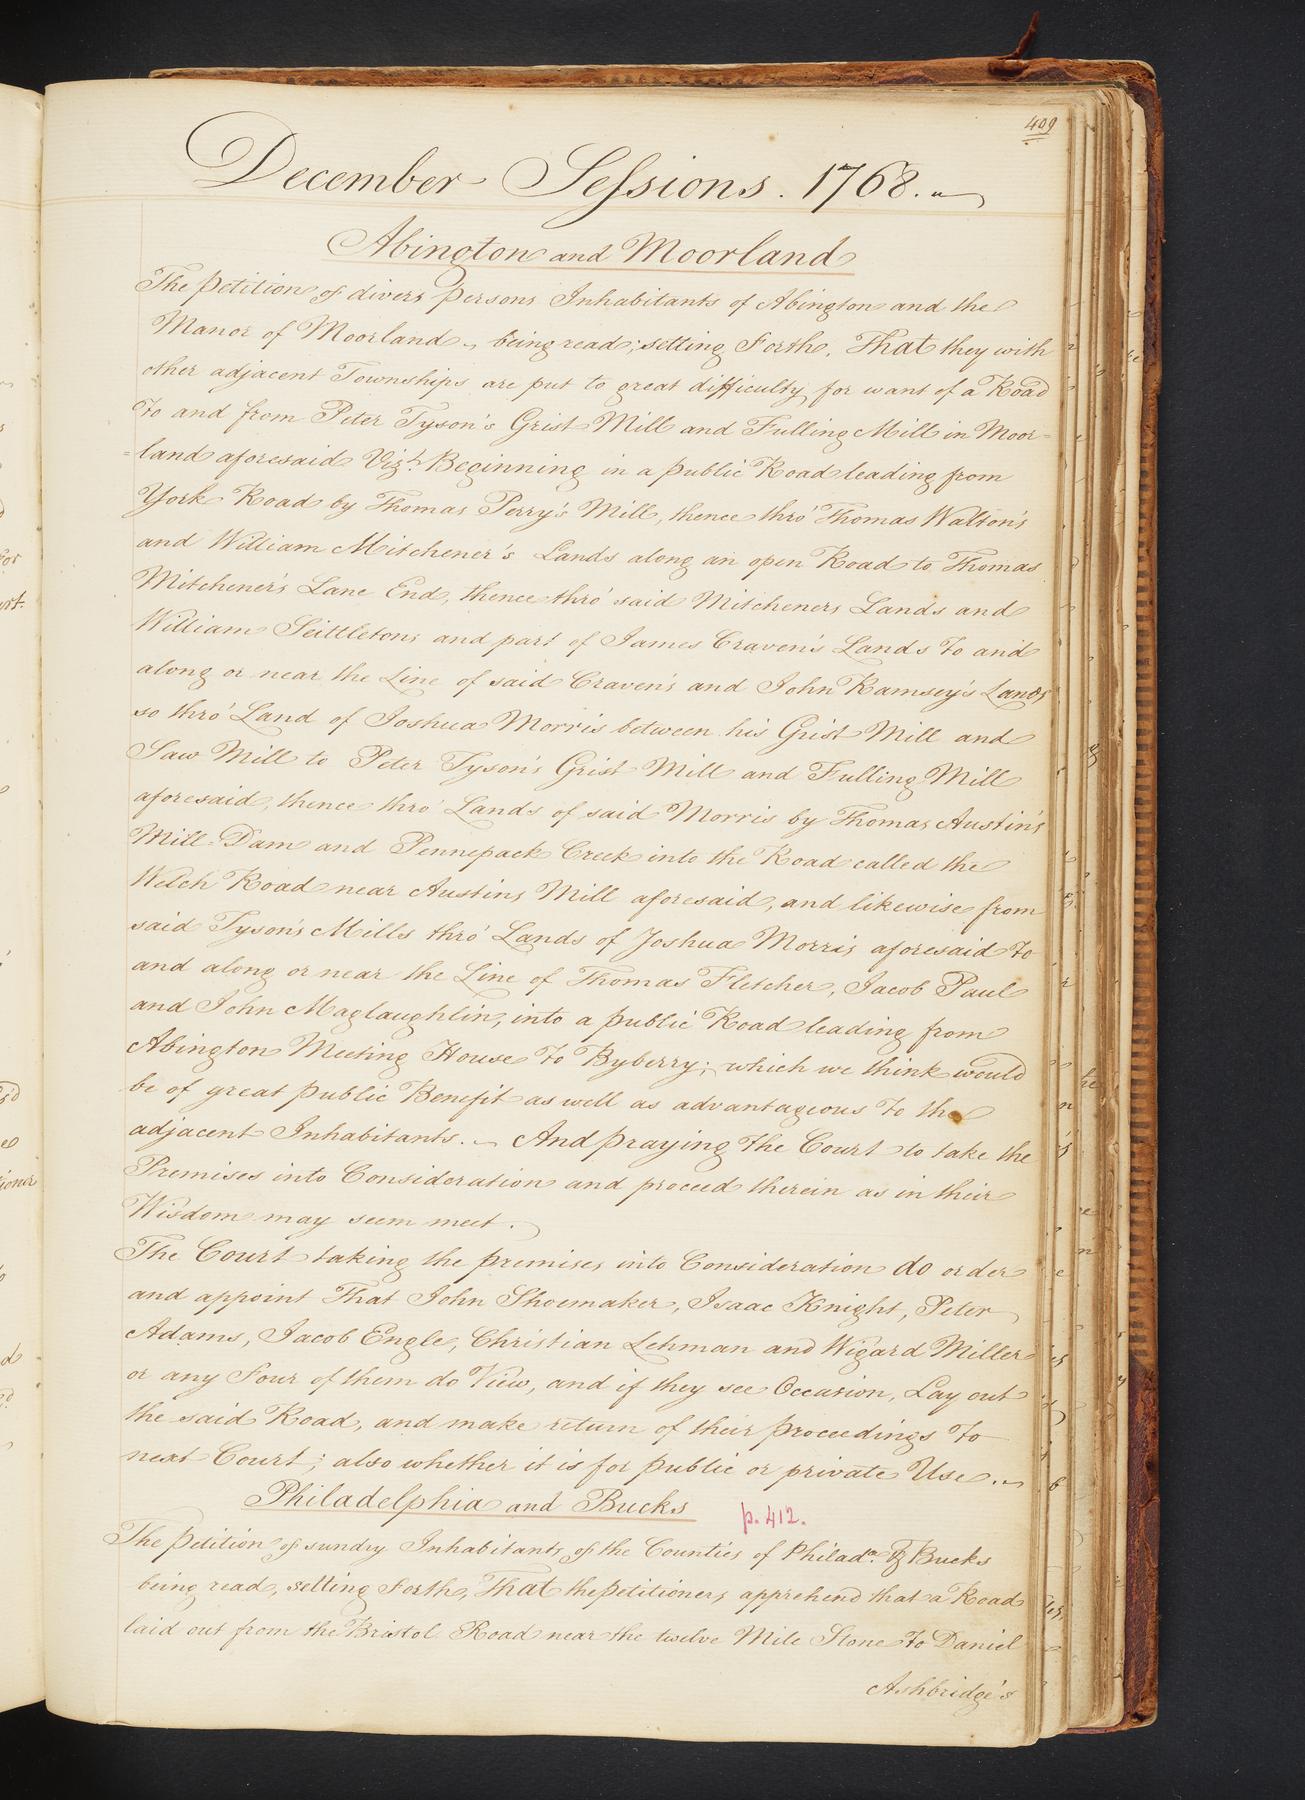 409
December Sessions. 1768.
Abington and Moorland
The petition of divers persons Inhabitants of Abington and the
Manor of Moorland being read; setting Forth, That they with
other adjacent Townships are put to great difficulty for want of a Road
To and from Peter Tyson's Grist Mill and Fulling Mill in Moor=
=land aforesaid Vizt. Beginning in a public Road leading from
York Road by Thomas Perry's Mill, thence thro' Thomas Walton's
and William Mitchener's Lands along an open Road to Thomas
Mitchener's Lane End, thence thro' said Mitcheners Lands and
William Seittletons and part of James Craven's Lands To and
along or near the Line of said Craven's and John Ramsey's Lands
so thro' Land of Joshua Morris between his Grist Mill and
Saw Mill to Peter Tyson's Grist Mill and Fulling Mill
aforesaid, thence thro' Lands of said Morris by Thomas Austin's
Mill-Dam and Pennepack Creek into the Road called the
Welch Road near Austins Mill aforesaid, and likewise from
said Tyson's Mills thro' Lands of Joshua Morris aforesaid To
and along or near the Line of Thomas Fletcher, Jacob Paul
and John Maglaughlin, into a public Road leading from
Abington Meeting House To Byberry; which we think would
be of great public Benefit as well as advantageous To the
adjacent Inhabitants. And praying the Court to take the
Premises into Consideration and proceed therein as in their
Wisdom may seem meet.
The Court taking the premises into Consideration do order
and appoint That John Shoemaker, Isaac Knight, Peter
Adams, Jacob Engle, Christian Lehman and Wigard Miller
or any Four of them do View, and if they see Occasion, Lay out
the said Road, and make return of their proceedings To
next Court; also whether it is for public or private Use.
Philadelphia and Bucks p. 412.
The petition of sundry Inhabitants of the Counties of Philada. & Bucks
being read, setting Forth, That the petitioners apprehend that a Road
laid out from the Bristol Road near the twelve Mile Stone To Daniel
Ashbridge's